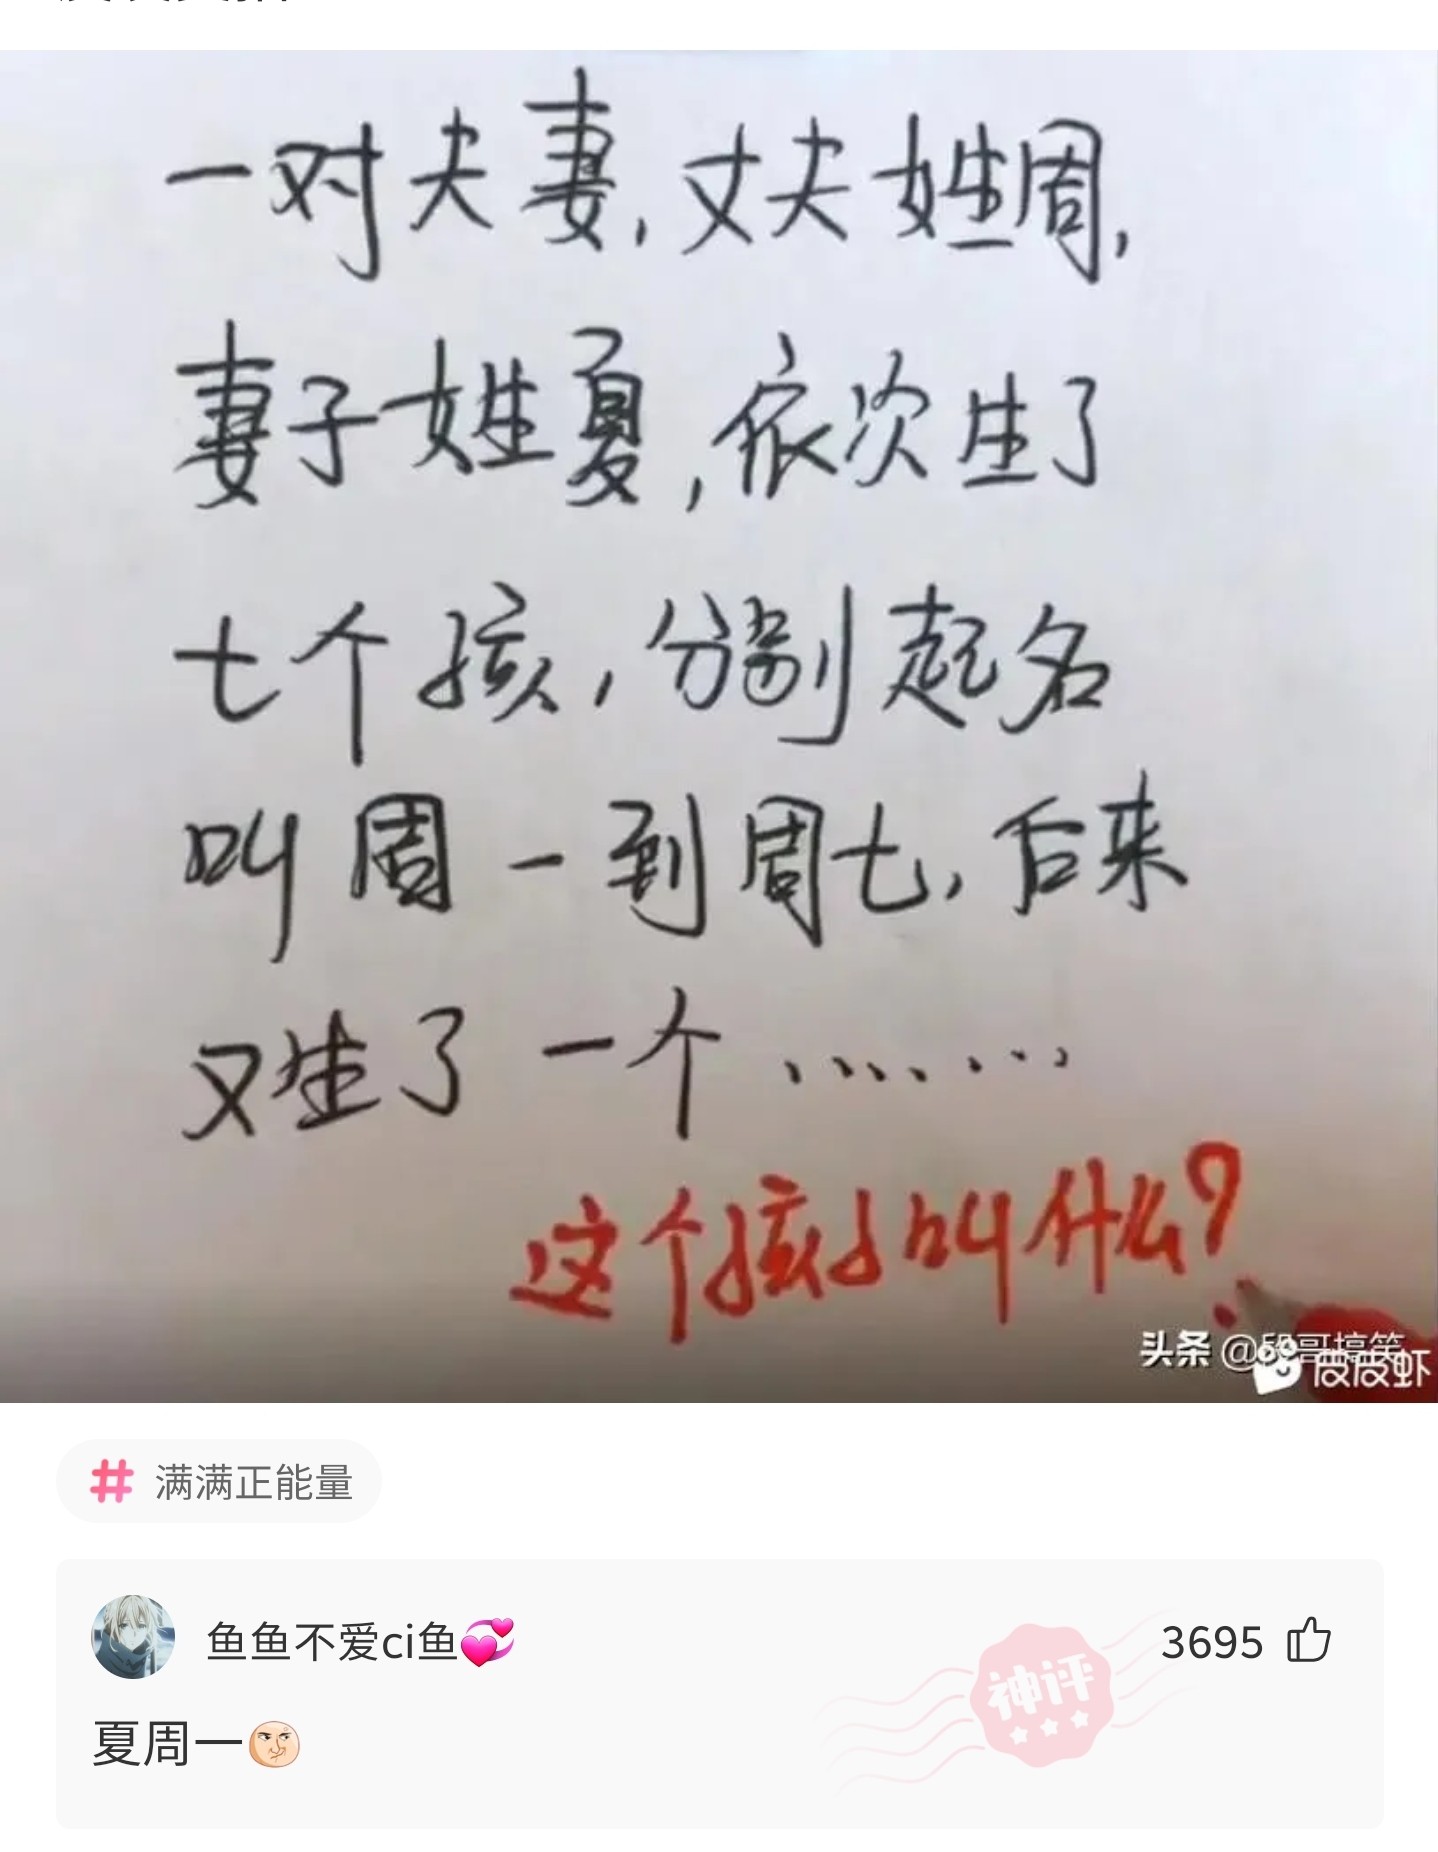 一对夫妻,丈夫姓周,
妻子姓夏,依次生了
七个孩,分别起名
叫周一到周七,后来
又生了一个………
这个孩子叫什么?
头条 @段哥搞笑
皮皮虾
# 满满正能量
鱼鱼不爱ci鱼💞
3695
神评
夏周一